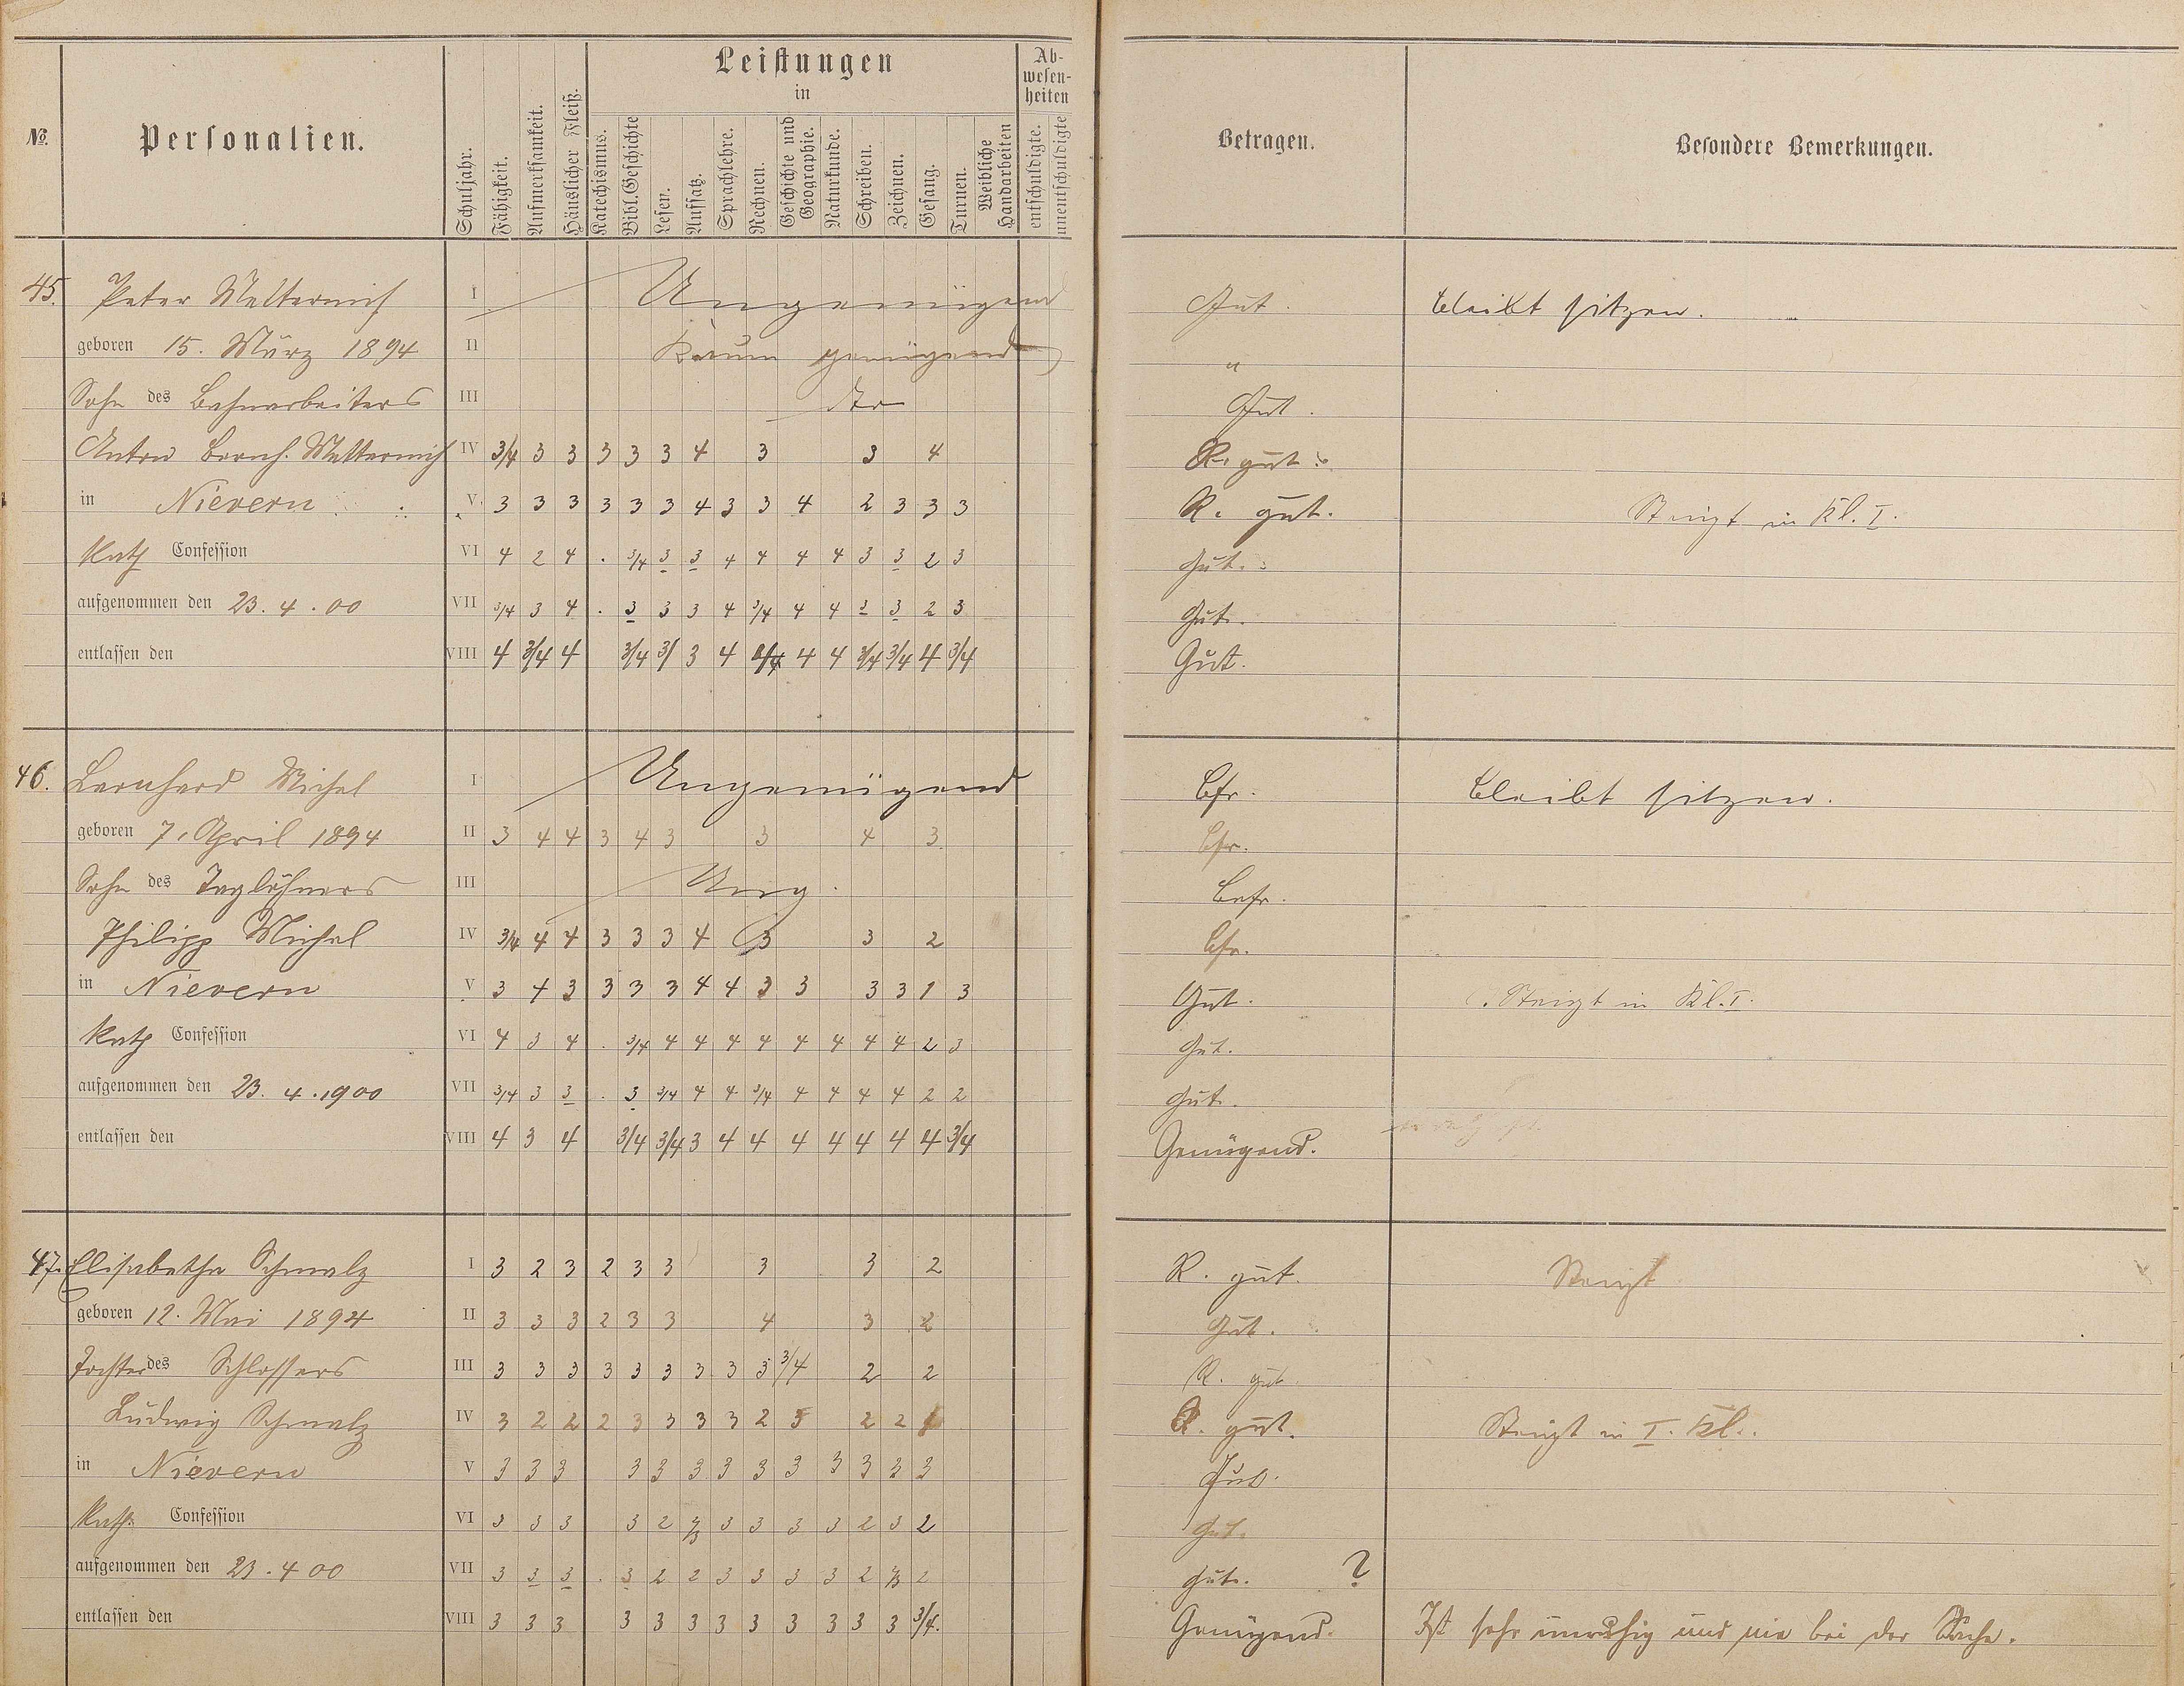 Leistungen
in
Ab-
wesen-
heiten
No.
Personalien.
Schuljahr.
Fähigkeit.
Aufmerksamkeit.
Häuslicher Fleiß.
Katechismus.
Bibl. Geschichte
Lesen.
Aufsatz.
Sprachlehre.
Rechnen.
Geschichte und
Geographie.
Naturkunde.
Schreiben.
Zeichnen.
Gesang.
Turnen.
Weibliche
Handarbeiten
entschuldigte.
unentschuldigte
Betragen.
Besondere Bemerkungen.
45. Peter Metternich I Ungenügend Gut. bleibt sitzen.
geboren 15. März 1894 II Kaum genügend "
Sohn des Bahnarbeiters III dto Gut.
Anton Bernh. Metternich IV 3/4 3 3 3 3 3 4 3 3 4 R. gut.
in Nievern V 3 3 3 3 3 3 4 3 3 4 2 3 3 3 R. gut. Steigt in Kl. I.
Kath Confession VI 4 2 4 . 3/4 3 3 4 4 4 4 3 3 2 3 Gut.
aufgenommen den 23. 4. 00 VII 3/4 3 4 . 3 3 3 4 3/4 4 4 3 3 2 3 Gut.
entlassen den VIII 4 3/4 4 3/4 3/ 3 4 4 4 3/4 3/4 4 3/4 Gut.
46. Bernhard Michel I Ungenügend bfr. bleibt sitzen.
geboren 7. April 1894 II 3 4 4 3 4 3 3 4 3 bfr.
Sohn des Taglöhners III Ung. befr.
Philipp Michel IV 3/4 4 4 3 3 3 4 3 3 2 bfr.
in Nievern V 3 4 3 3 3 3 4 4 3 3 3 3 1 3 Gut. Steigt in Kl. I.
Kath Confession VI 4 3 4 . 3/4 4 4 4 4 4 4 4 4 2 3 Gut.
aufgenommen den 23. 4. 1900 VII 3/4 3 3 . 3 3/4 4 4 3/4 4 4 4 4 2 2 Gut.
entlassen den VIII 4 3 4 3/4 3/4 3 4 4 4 4 4 4 4 3/4 Genügend.
47. Elisabetha Schmalz I 3 2 3 2 3 3 3 3 2 R. gut. Steigt
geboren 12. Mai 1894 II 3 3 3 2 3 3 4 3 2 Gut.
Tochter des Schlossers III 3 3 3 3 3 3 3 3 3 3/4 2 2 R. gut
Ludwig Schmalz IV 3 2 2 2 3 3 3 3 2 3 2 2 R. gut. Steigt in I. Kl.
in Nievern V 3 3 3 3 3 3 3 3 3 3 3 3 3 Gut.
Kath. Confession VI 3 3 3 3 2 2/3 3 3 3 3 2 3 2 Gut.
aufgenommen den 23. 4 00 VII 3 3 3 . 3 2 2 3 3 3 3 2 2/3 2 Gut. ?
entlassen den VIII 3 3 3 3 3 3 3 3 3 3 3 3 3/4. Genügend. Ist sehr unruhig und nie bei der Sache.